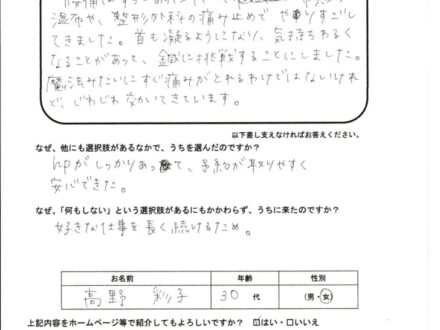 湿布や、整形外科の痛み止めでやりすごし
てきました。首も凝るようになり、気持ちわるく
なることがあって、鍼に挑戦することにしました。
魔法みたいにすぐ痛みがとれるわけではないけれ
ど、じわじわ効いてきています。
以下差し支えなければお答えください。
なぜ、他にも選択肢があるなかで、うちを選んだのですか?
hpがしっかりあって、予約が取りやすく
安心できた。
なぜ、「何もしない」という選択肢があるにもかかわらず、うちに来たのですか?
好きな仕事を長く続けるため。
お名前 年齢 性別
高野 彩子 30代 (男・女)
上記内容をホームページ等で紹介してもよろしいですか? ☑はい・□いいえ